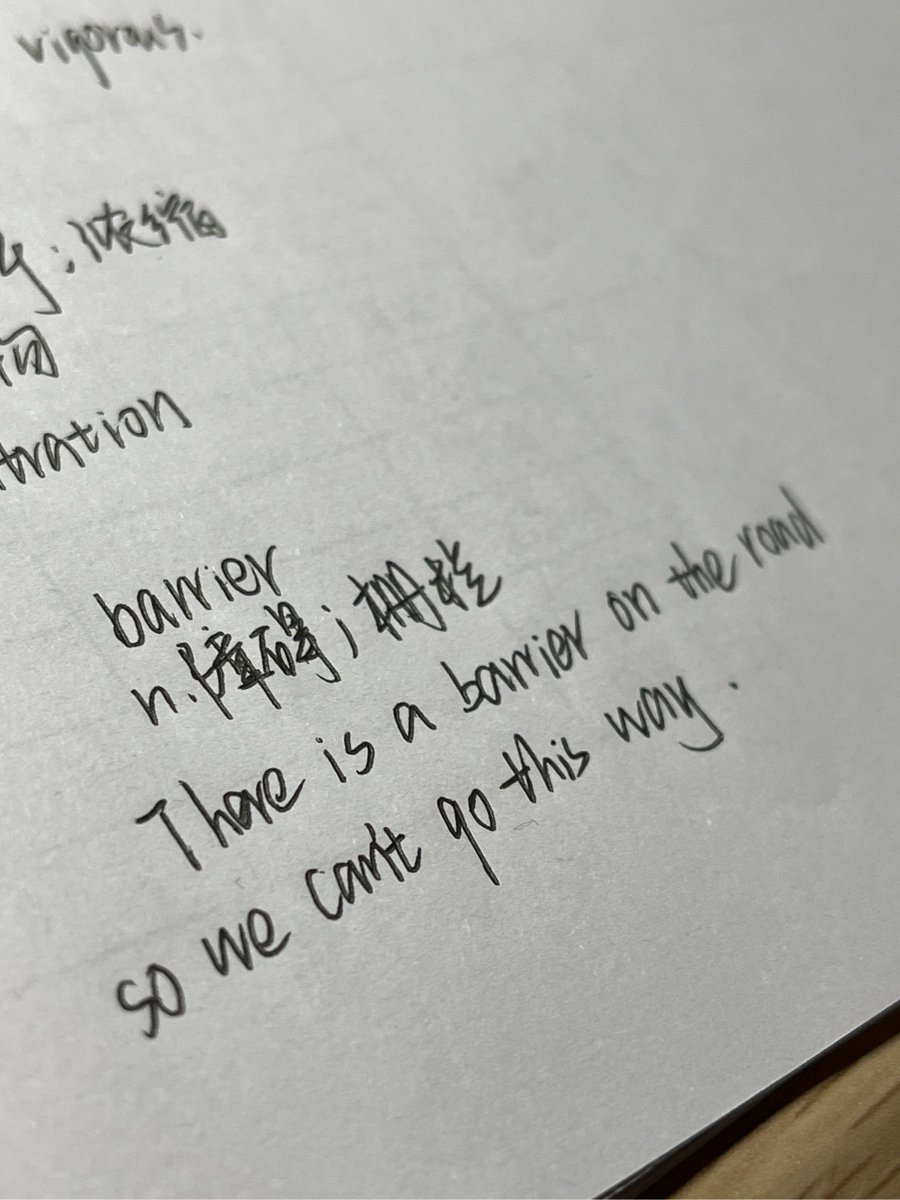 vigorous.
;浓缩
词
tration
barrier
n.障碍;栅栏
There is a barrier on the road
so we can't go this way.